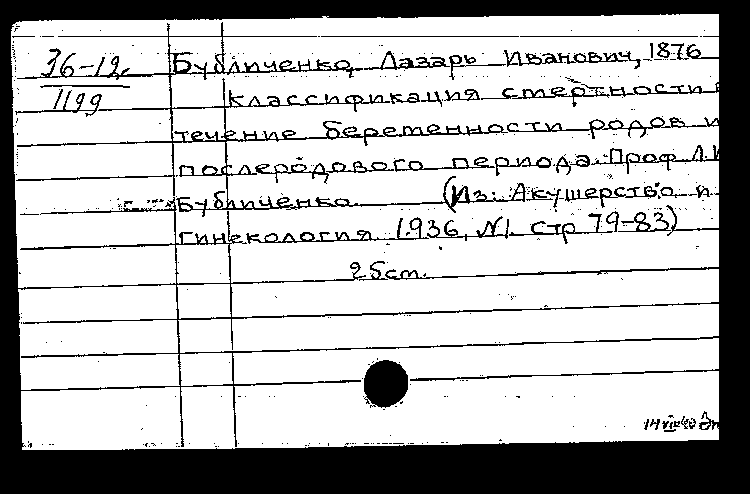 36-12
1199
Бубличенко, Лазарь Иванович, 1876
Классификация смертности в
течение беременности родов и
послеродового периода. Проф Л.И
Бубличенко. (Из: Акушерство и
гинекология 1.936, №1. стр 79-83)
25cm.